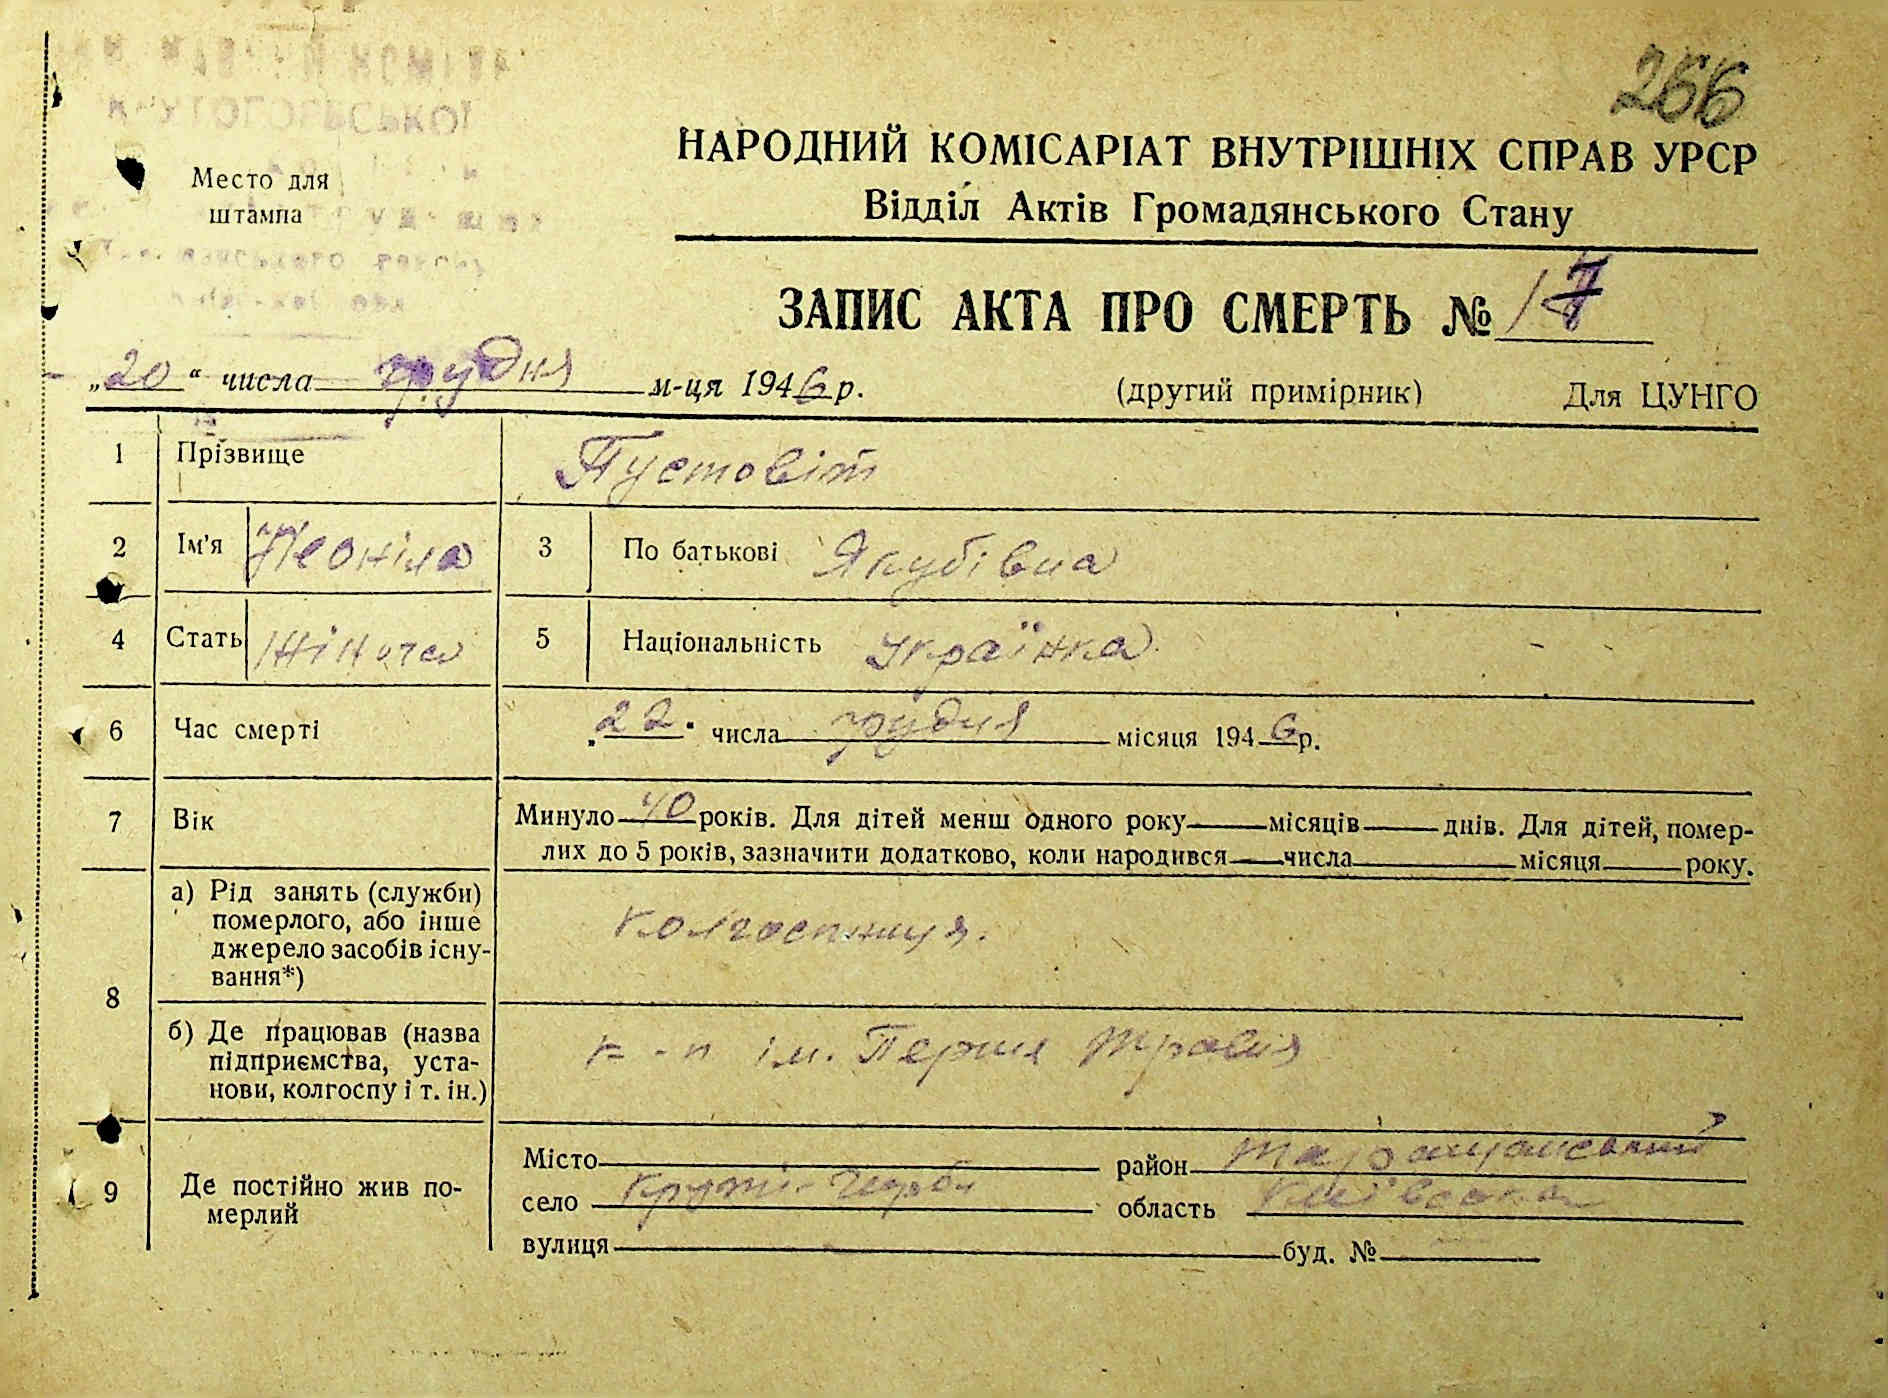 266
КРУТОГОРБСЬКОЇ
Место для
штампа
НАРОДНИЙ КОМІСАРІАТ ВНУТРІШНІХ СПРАВ УРСР
Відділ Актів Громадянського Стану
ЗАПИС АКТА ПРО СМЕРТЬ № 17
„20“ числа грудня м-ця 1946 р. (другий примірник) Для ЦУНГО
1 Прізвище Пустовіт
2 Ім'я Неоніла 3 По батькові Якубівна
4 Стать жіноча 5 Національність українка
6 Час смерті „22" числа грудня місяця 1946 р.
7 Вік Минуло 40 років. Для дітей менш одного року місяців днів. Для дітей, помер-
лих до 5 років, зазначити додатково, коли народився числа місяця року.
8 а) Рід занять (служби)
померлого, або інше
джерело засобів існу-
вання*)
колгоспниця.
б) Де працював (назва
підприємства, уста-
нови, колгоспу і т. ін.)
к-п ім. Перше травня
9 Де постійно жив по-
мерлий
Місто район таращанський
село Круті-Горби область Київська
вулиця буд. №